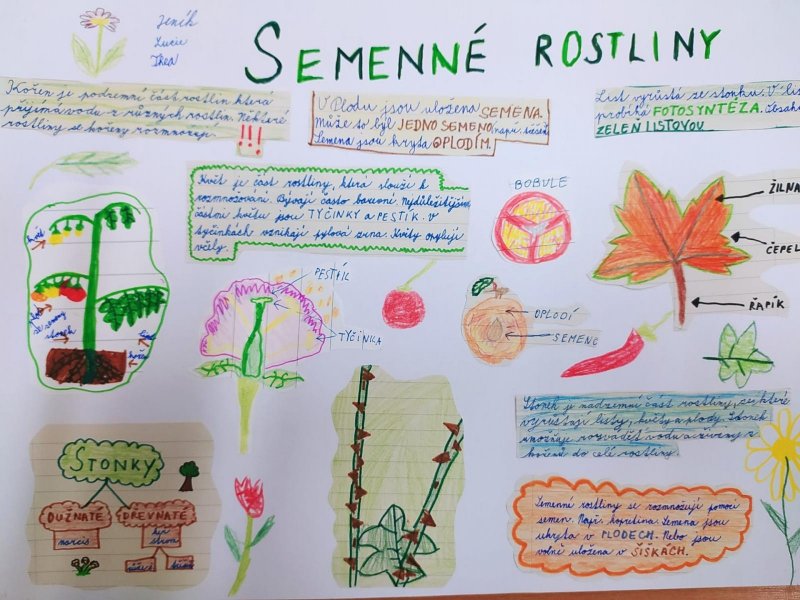 Jeník
Lucie
Thea
SEMENNÉ ROSTLINY
Kořen je podzemní část rostlin která
přijímá vodu z různých rostlin. Některé
rostliny se kořeny rozmnožují.
!!!
V Plodu jsou uložena SEMENA.
Může to být JEDNO SEMENO, např.
Semena jsou kryta OPLODÍM.
List vyrůstá ze stonku. V li
probíhá FOTOSYNTÉZA.
ZELEŇ LISTOVOU
Květ je část rostliny, která slouží k
rozmnožování. Bývají často barevné. Nejdůležitějšími
částmi květu jsou TYČINKY a PESTÍK. V
tyčinkách vznikají pylová zrna. Květy opylují
včely.
BOBULE
ŽILNA
ČEPEL
ŘAPÍK
květ
se semeny
stonek
list
kořen
PESTÍK
TYČINKA
OPLODÍ
SEMENO
Stonek je nadzemní část rostliny, ze které
vyrůstají listy, květy a plody. Stonek
umožňuje rozvádět vodu a živiny z
kořenů do celé rostliny.
STONKY
DUŽNATÉ
DŘEVNATÉ
narcis
keř
strom
Semenné rostliny se rozmnožují pomocí
semen. Např. kopretina. Semena jsou
ukryta v PLODECH. Nebo jsou
volně uložena v ŠIŠKÁCH.